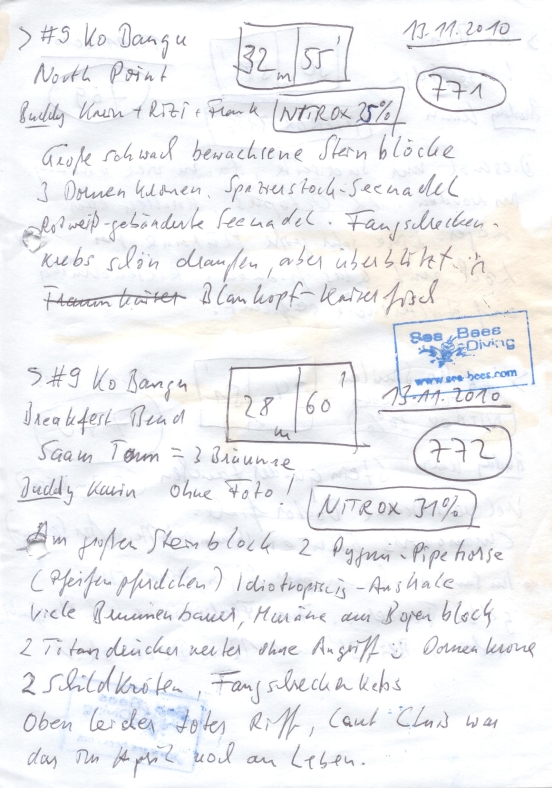 > #9 Ko Bangu 32 m 55' 13.11.2010
North Point 771
Buddy Karin + Rizi + Frank NITROX 25%
Große schwach bewachsene Steinblöcke
3 Dornenkronen. Spazierstock-Seenadel
Rotweiß-gebänderte Seenadel. Fangschrecken-
krebs schön draußen, aber überblitzt
Blaukopf-Kaiserfisch
Sea Bees
Diving
www.sea-bees.com
> #9 Ko Bangu 28 m 60' 13.11.2010
Breakfest Bend 772
Saam = 3 Bräunse
Buddy Karin ohne Foto! NITROX 31%
Am großen Steinblock 2 Pygmi-Pipehorse
(Pfeifenpferdchen) Idiotropiscis-Australe
Viele Brunnenbauer, Muräne am Bogenblock
2 Titandrücker weiter ohne Angriff Dornenkrone
2 Schildkröten, Fangschreckenkrebs
Oben leider totes Riff, laut Chris war
das im April noch am Leben.